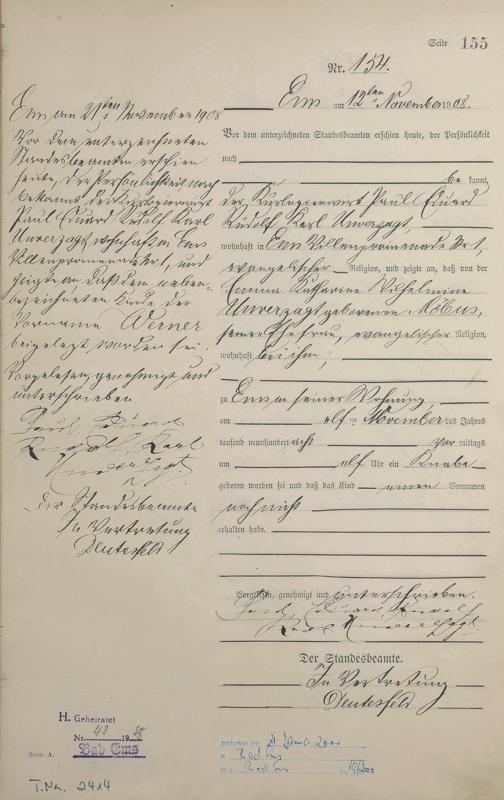 Seite 155
Nr. 154.
Ems am 12ten November 1908.
Vor dem unterzeichneten Standesbeamten erschien heute, der Persönlichkeit
nach
be kannt,
der Kurlogierwirt Paul Eduard
Rudolf Karl Unverzagt,
wohnhaft in Ems Villenpromenade Nr 1,
evangelischer Religion, und zeigte an, daß von der
Emma Katharine Wilhelmine
Unverzagt geborenen Möbus,
seiner Ehefrau, evangelischer Religion,
wohnhaft bei ihm,
zu Ems in seiner Wohnung,
am elf ten November des Jahres
tausend neunhundert acht vor mittags
um elf Uhr ein Knabe
geboren worden sei und daß das Kind einen Vornamen
noch nicht
erhalten habe.
Vorgelesen, genehmigt und unterschrieben.
Paul, Eduard, Rudolf
Karl Unverzagt
Der Standesbeamte.
In Vertretung
Deutesfeld
Ems am 21ten November 1908
Vor dem unterzeichneten
Standesbeamten erschien
heute, der Persönlichkeit nach
bekannt, der Kurlogierwirt
Paul Eduard Rudolf Karl
Unverzagt, wohnhaft in Ems
Villenpromenade Nr 1, und
zeigte an, daß dem neben-
bezeichneten Kinde der
Vorname Werner
beigelegt worden sei.
Vorgelesen genehmigt und
unterschrieben
Paul, Eduard
Rudolf, Karl
Unverzagt
Der Standesbeamte
In Vertretung
Deutesfeld
H. Geheiratet
Nr. 43 1938
Bad Ems
Form. A.
T.Nr. 2414
gestorben am 2001
in Bad Ems
Bad Ems Nr.